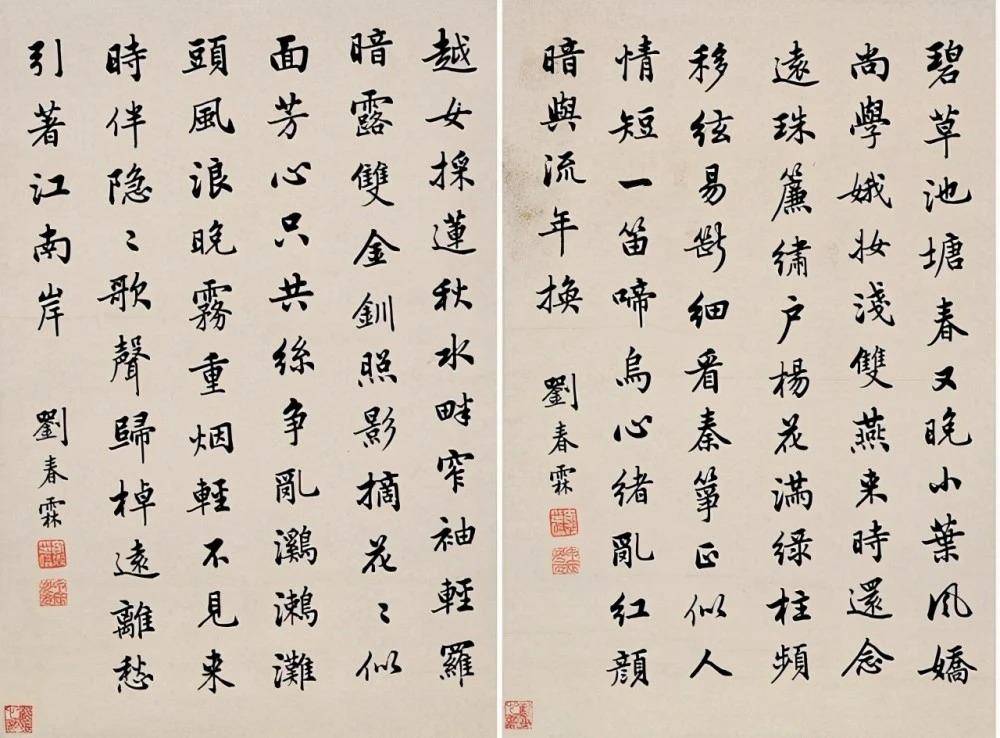 碧草池塘春又晚小葉風嬌
尚學娥妝淺雙燕来時還念
遠珠簾繡户楊花满緑柱頻
移絃易斷細看秦箏正似人
情短一笛啼烏心緒亂紅顔
暗與流年換
劉春霖
越女採蓮秋水畔窄袖輕羅
暗露雙金釧照影摘花〻似
面芳心只共絲争亂鸂鶒灘
頭風浪晚霧重烟輕不見来
時伴隐〻歌聲歸棹遠離愁
引著江南岸
劉春霖